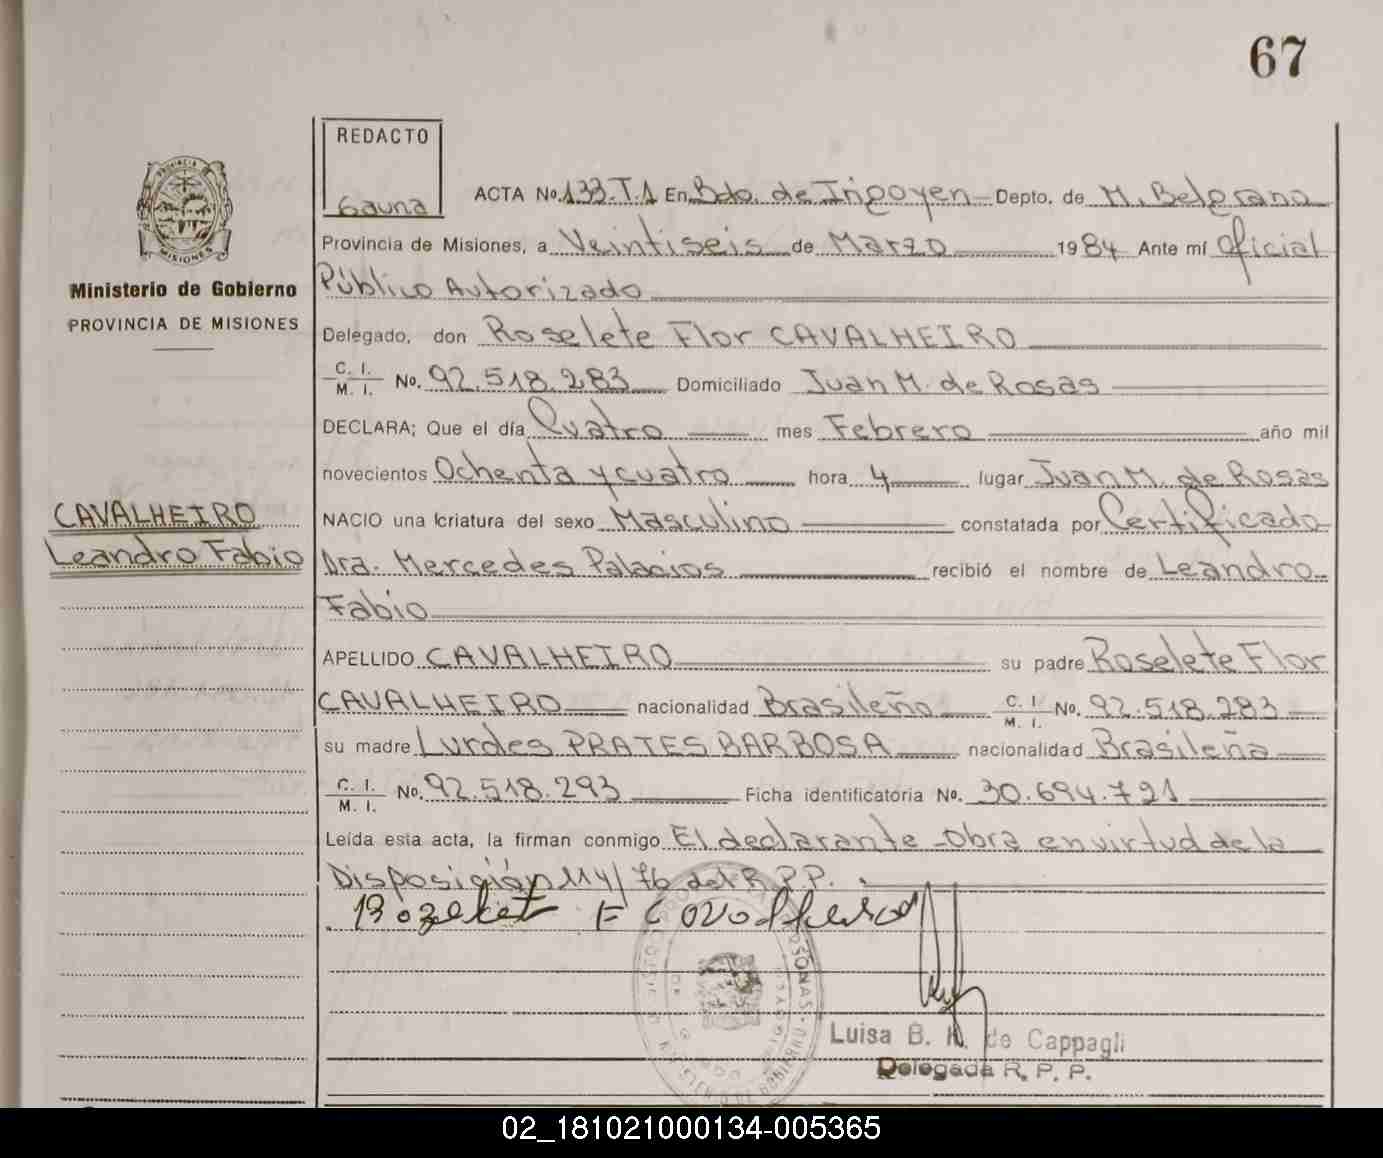 67
REDACTO
Gauna
ACTA No. 133.T.1 En Bdo. de Irigoyen Depto. de M. Belgrano
Provincia de Misiones, a Veintiseis de Marzo 1984 Ante mí Oficial
Público Autorizado
Delegado, don Roselete Flor CAVALHEIRO
C. I. M. I. No. 92.518.283 Domiciliado Juan M. de Rosas
DECLARA; Que el día Cuatro mes Febrero año mil
novecientos Ochenta y cuatro hora 4 lugar Juan M. de Rosas
NACIO una criatura del sexo Masculino constatada por Certificado
Dra. Mercedes Palacios recibió el nombre de Leandro
Fabio
APELLIDO CAVALHEIRO su padre Roselete Flor
CAVALHEIRO nacionalidad Brasileño C. I. M. I. No. 92.518.283
su madre Lurdes PRATES BARBOSA nacionalidad Brasileña
C. I. M. I. No. 92.518.293 Ficha identificatoria No. 30.694.721
Leída esta acta, la firman conmigo El declarante - Obra en virtud de la
Disposición 114/76 del R.P.P.
Luisa B. K. de Cappagli
Delegada R. P. P.
PROVINCIA DE MISIONES
Ministerio de Gobierno
PROVINCIA DE MISIONES
CAVALHEIRO
Leandro Fabio
02_181021000134-005365